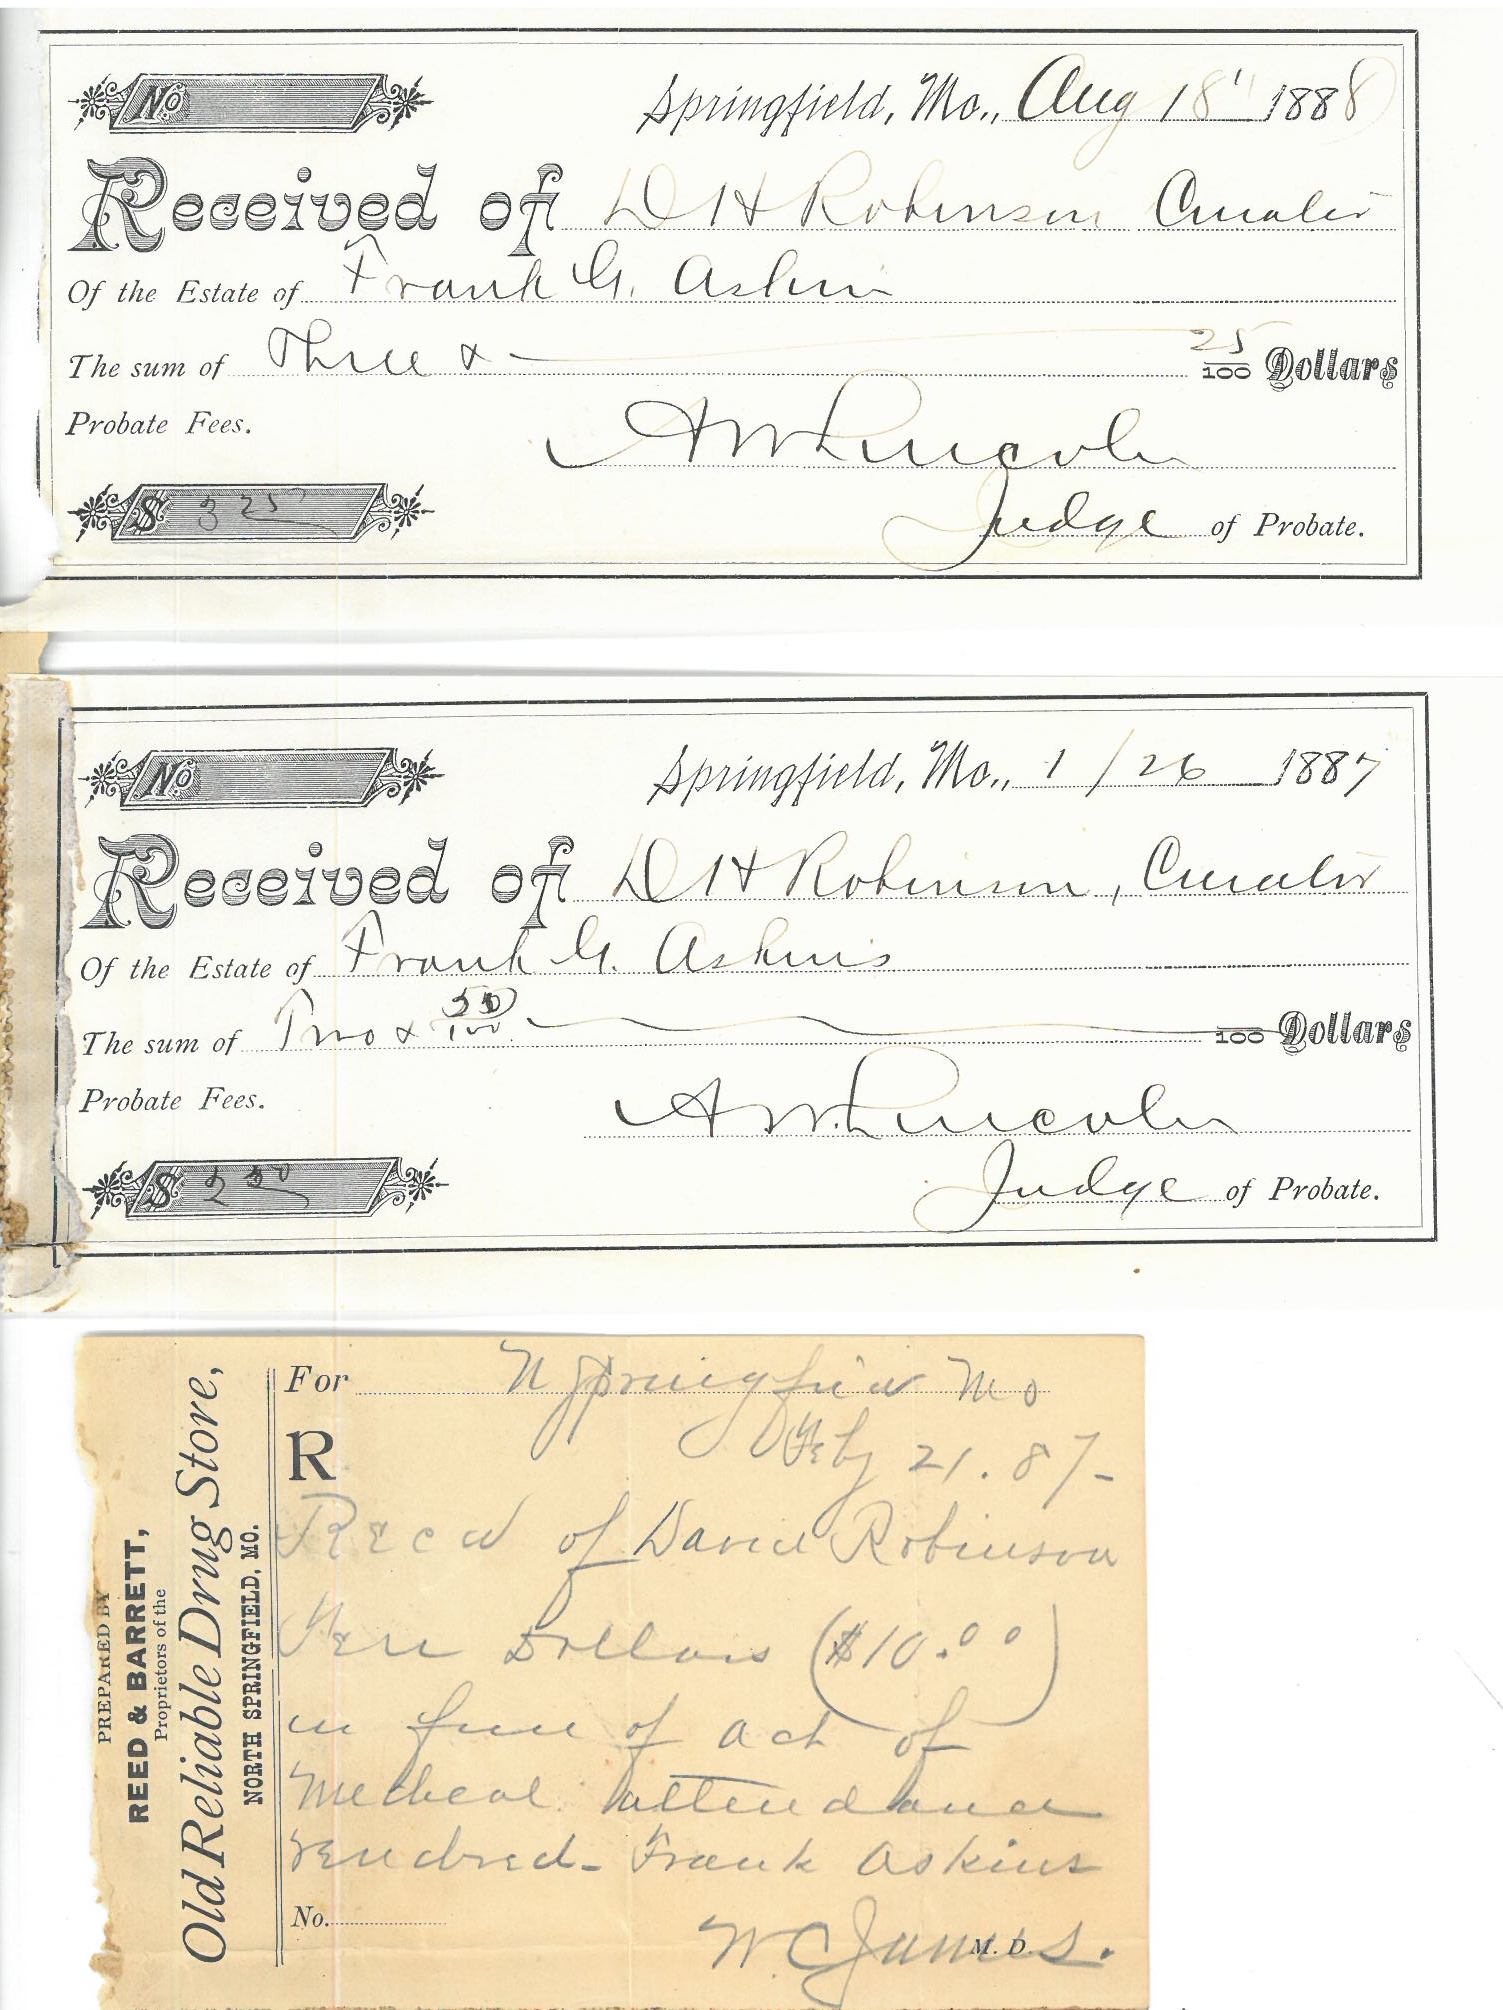 No
Springfield, Mo., Aug 18" 1888
Received of D H Robinson Curator
Of the Estate of Frank G. Askin
The sum of Three & 25/100 Dollars
Probate Fees.
A W Lincoln
$ 3 25
Judge of Probate.
No
Springfield, Mo., 1/26 1887
Received of D H Robinson, Curator
Of the Estate of Frank G. Askins
The sum of Two & 50/100 /100 Dollars
Probate Fees.
A W. Lincoln
$ 2 50
Judge of Probate.
PREPARED BY
REED & BARRETT,
Proprietors of the
Old Reliable Drug Store,
NORTH SPRINGFIELD, MO.
For N Springfield Mo
R Feby 21. 87-
Recd of David Robinson
Ten Dollars ($10.00)
in full of act of
Medical attendance
rendred- Frank Askins
No.
W. C. James. M. D.